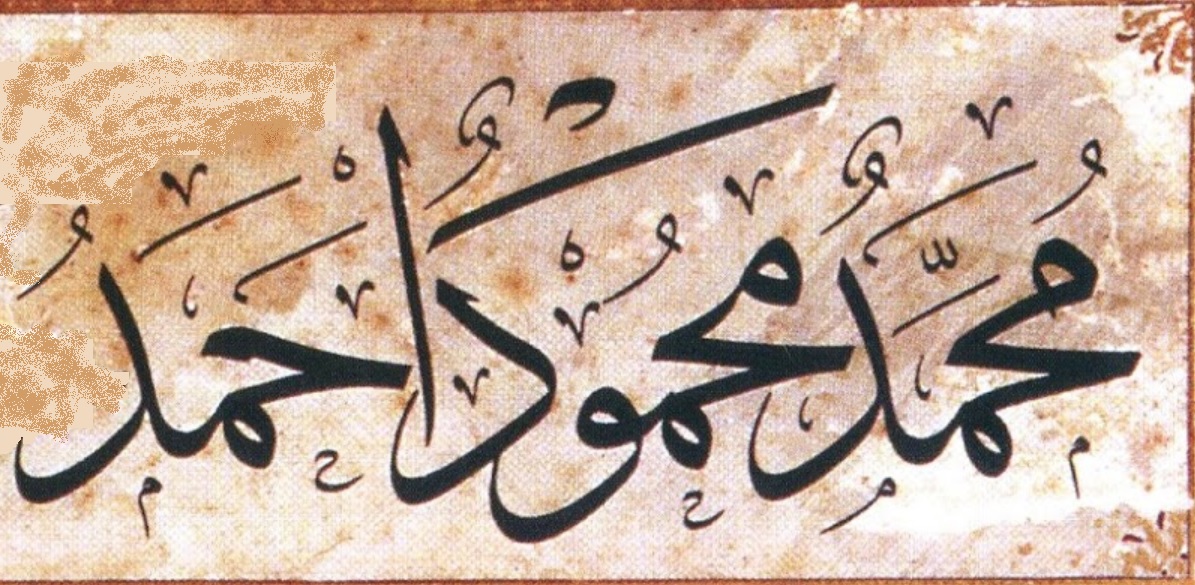 مُحَمَّدٌ مَحْمُودٌ اَحْمَدُ